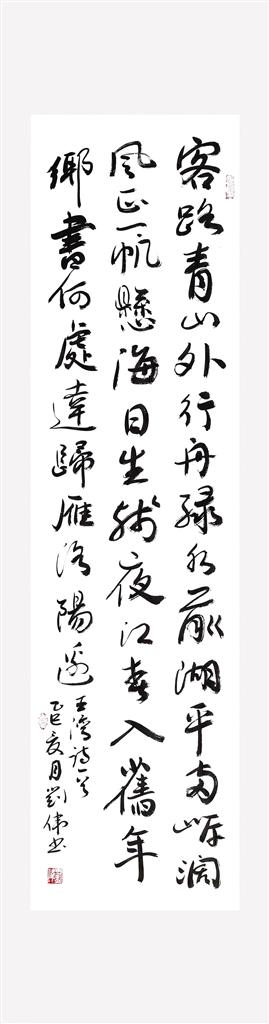 客路青山外行舟緑水前湖平兩岸闊
風正一帆懸海日生殘夜江春入舊年
鄉書何處達歸雁洛陽邊
王灣詩一首
乙巳夏月劉偉书